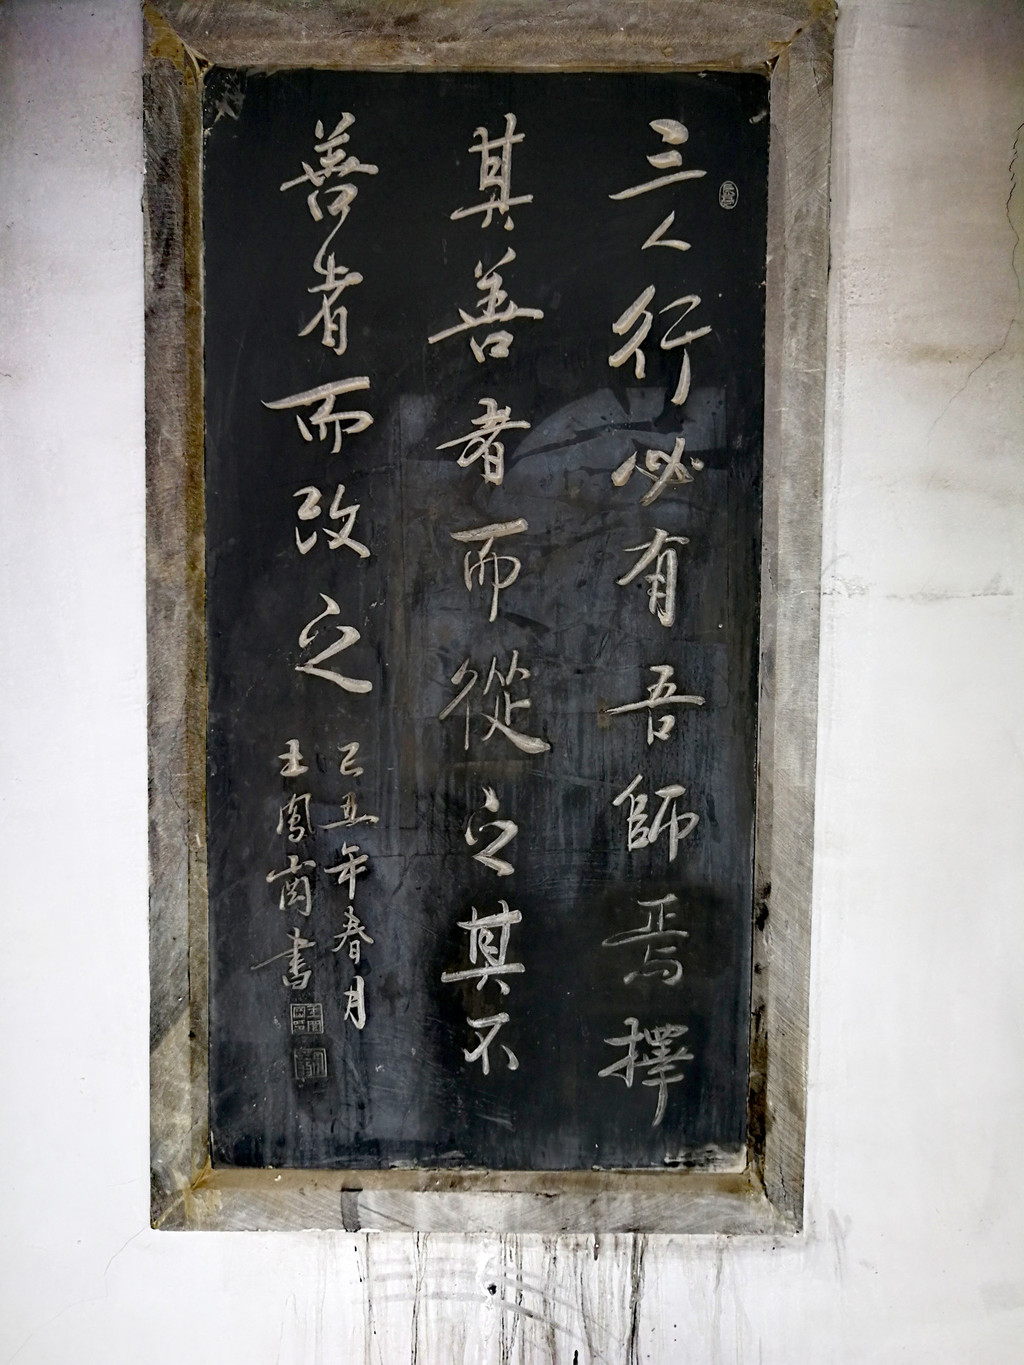 三人行必有吾師焉擇
其善者而從之其不
善者而改之
己丑年春月
王鳳崗書